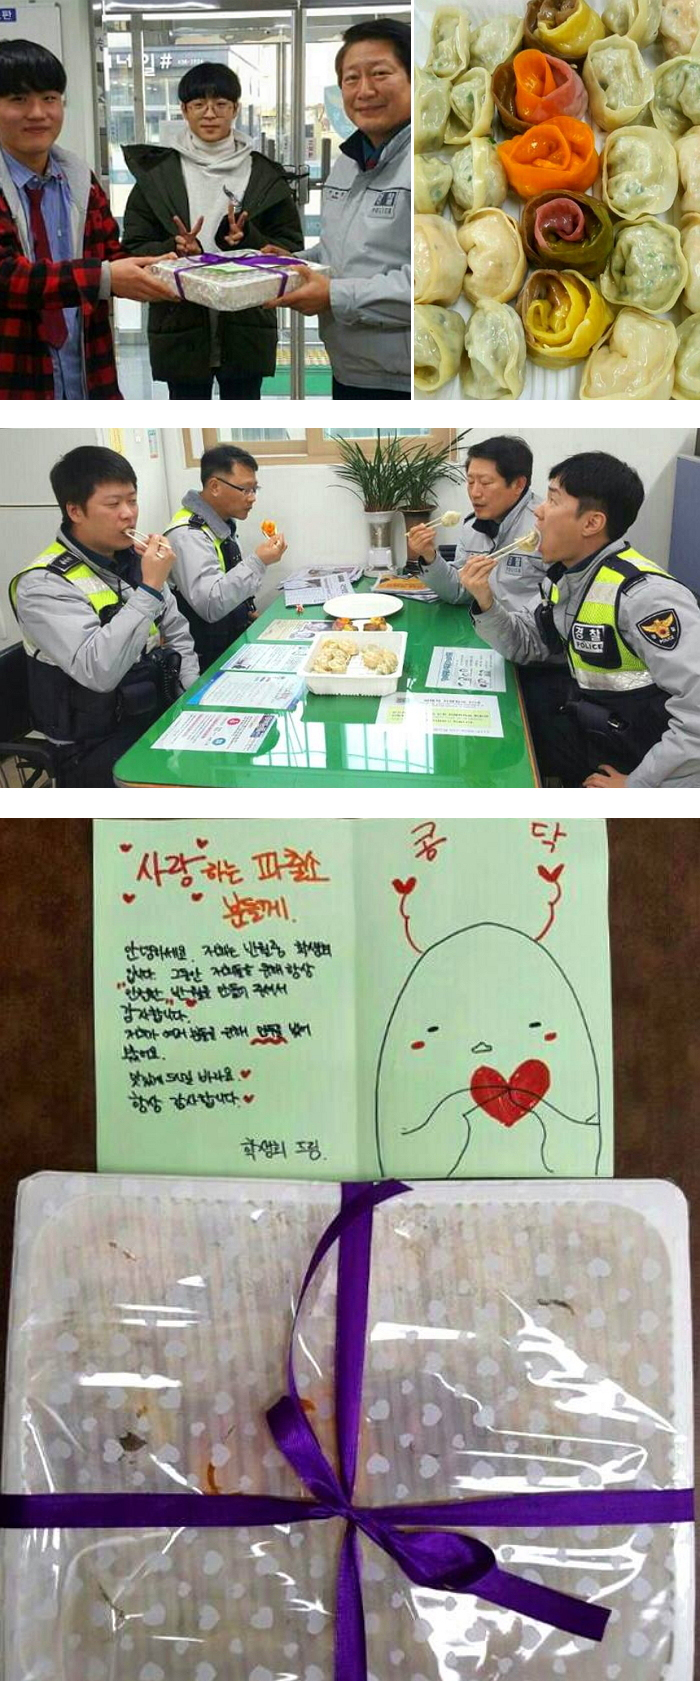 POLICE
경찰
POLICE
사랑하는 파출소
분들께.
안녕하세요. 저희는 반월중 학생회
입니다. 그동안 저희들을 위해 항상
"안전한 반월"을 만들어 주셔서
감사합니다.
저희가 여러분들을 위해 만두를 빚어
봤어요.
맛있게 드시길 바라요.
항상 감사합니다.
학생회 드림.
콩 닥